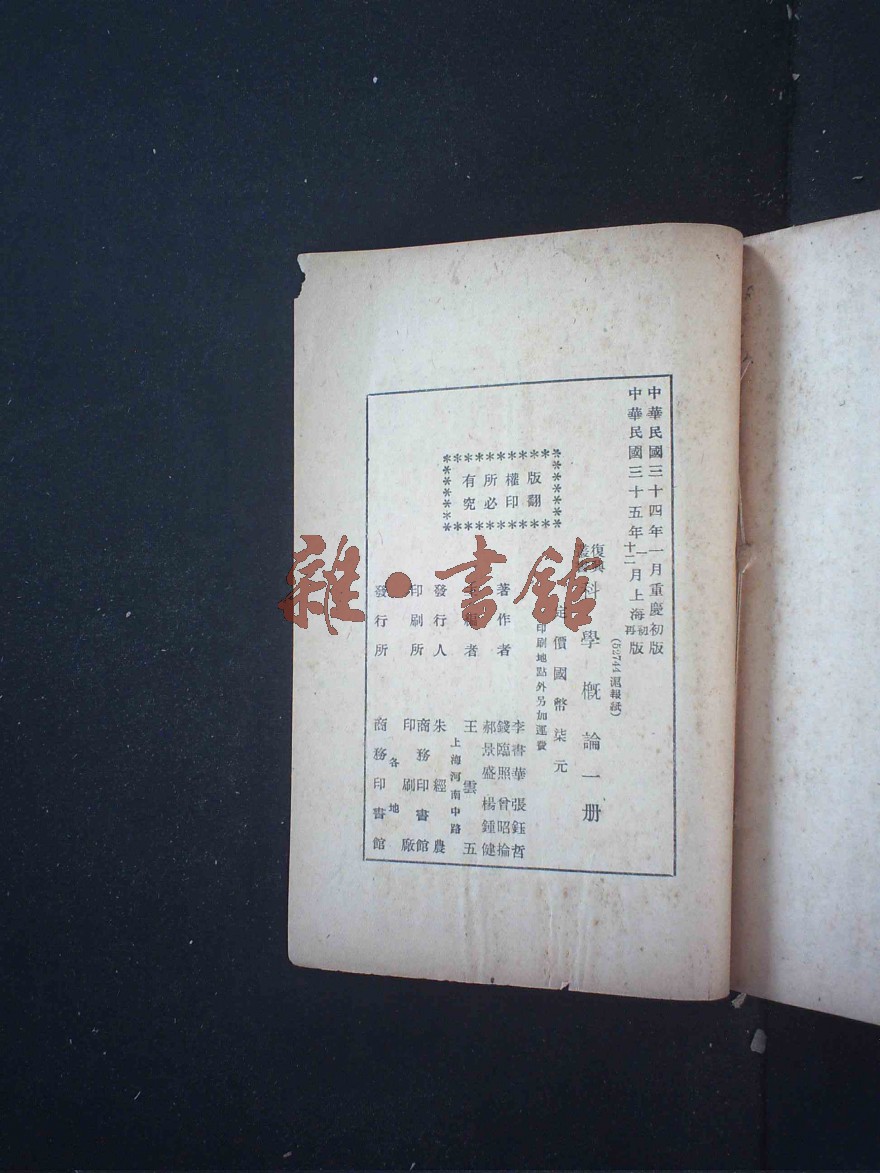 中華民國三十四年一月重慶初版
中華民國三十五年一月上海初版
十二 再
(52744 滬報紙)
復興叢書 科學概論一册
定價國幣柒元
印刷地點外另加運費
版權所有
翻印必究
著作者 李書華 張鈺哲
錢臨照 曾昭掄
郝景盛 楊鍾健
主編者 王雲五
上海河南中路
發行人 朱經農
印刷所 商務印書館
印刷廠
發行所 各地
商務印書館
雜·書館